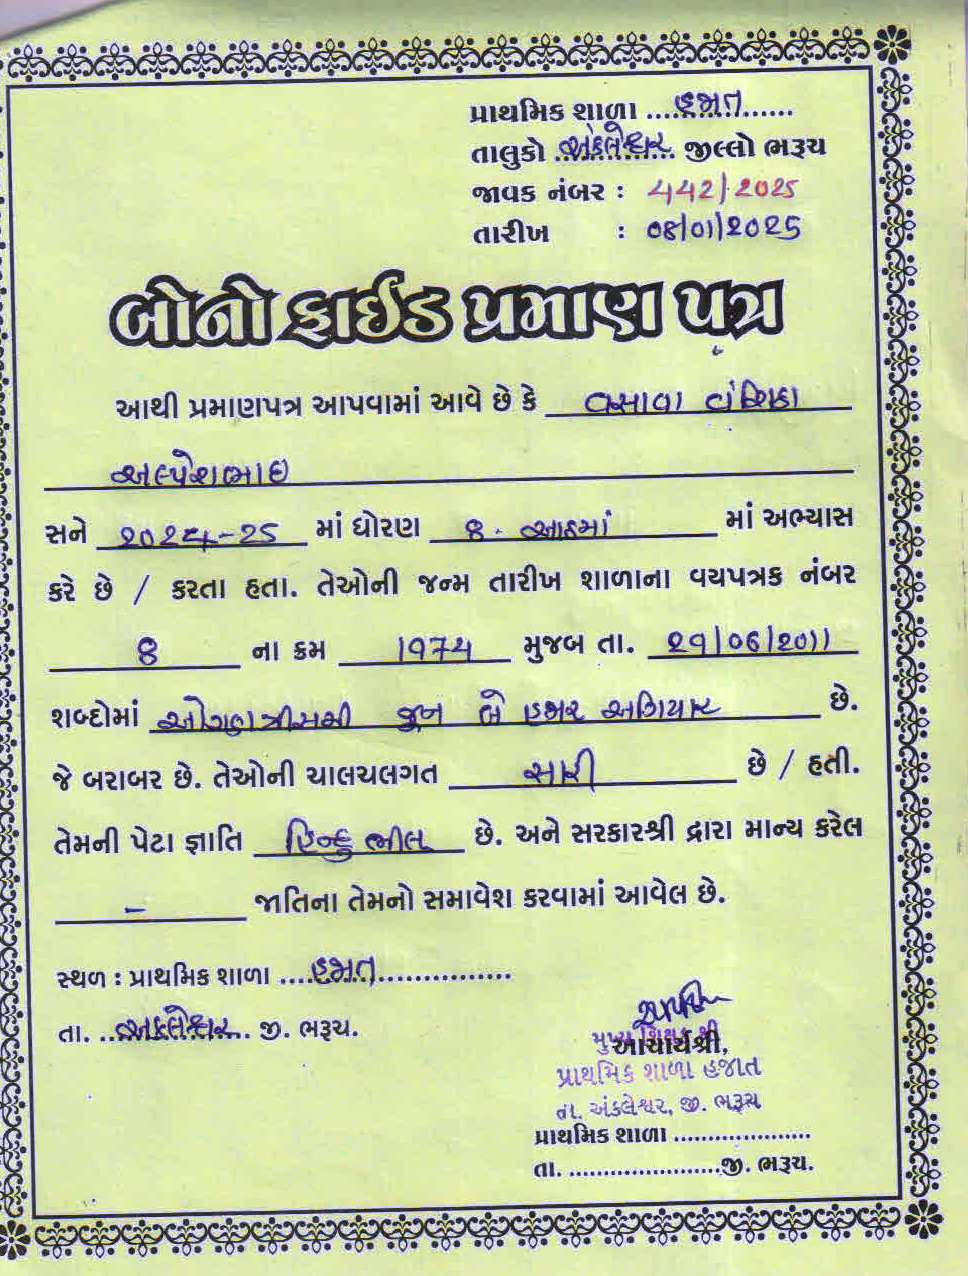 પ્રાથમિક શાળા ....હજાત......
તાલુકો ..અંકલેશ્વર.. જીલ્લો ભરૂચ
જાવક નંબર : 442/2025
તારીખ : 08/01/2025
બોનોફાઈડ પ્રમાણ પત્ર
આથી પ્રમાણપત્ર આપવામાં આવે છે કે વસાવા વંશિકા
અલ્પેશભાઇ
સને ૨૦૨૪-૨૫ માં ધોરણ ૪- આઠમાં માં અભ્યાસ
કરે છે / કરતા હતા. તેઓની જન્મ તારીખ શાળાના વયપત્રક નંબર
8 ના ક્રમ ૧૧૭૪ મુજબ તા. ૨૧/૦૬/૨૦૧૧
શબ્દોમાં ઓગણત્રીસમી જૂન બે હજાર અગિયાર છે.
જે બરાબર છે. તેઓની ચાલચલગત સારી છે / હતી.
તેમની પેટા જ્ઞાતિ હિન્દુ ભીલ છે. અને સરકારશ્રી દ્રારા માન્ય કરેલ
- જાતિના તેમનો સમાવેશ કરવામાં આવેલ છે.
સ્થળ : પ્રાથમિક શાળા ....હજાત................
તા. ..અંકલેશ્વર.. જી. ભરૂચ.
મુખ્ય શિક્ષક શ્રી
આચાર્યશ્રી,
પ્રાથમિક શાળા હજાત
તા. અંકલેશ્વર, જી. ભરૂચ
પ્રાથમિક શાળા .....................
તા. .......................જી. ભરૂચ.